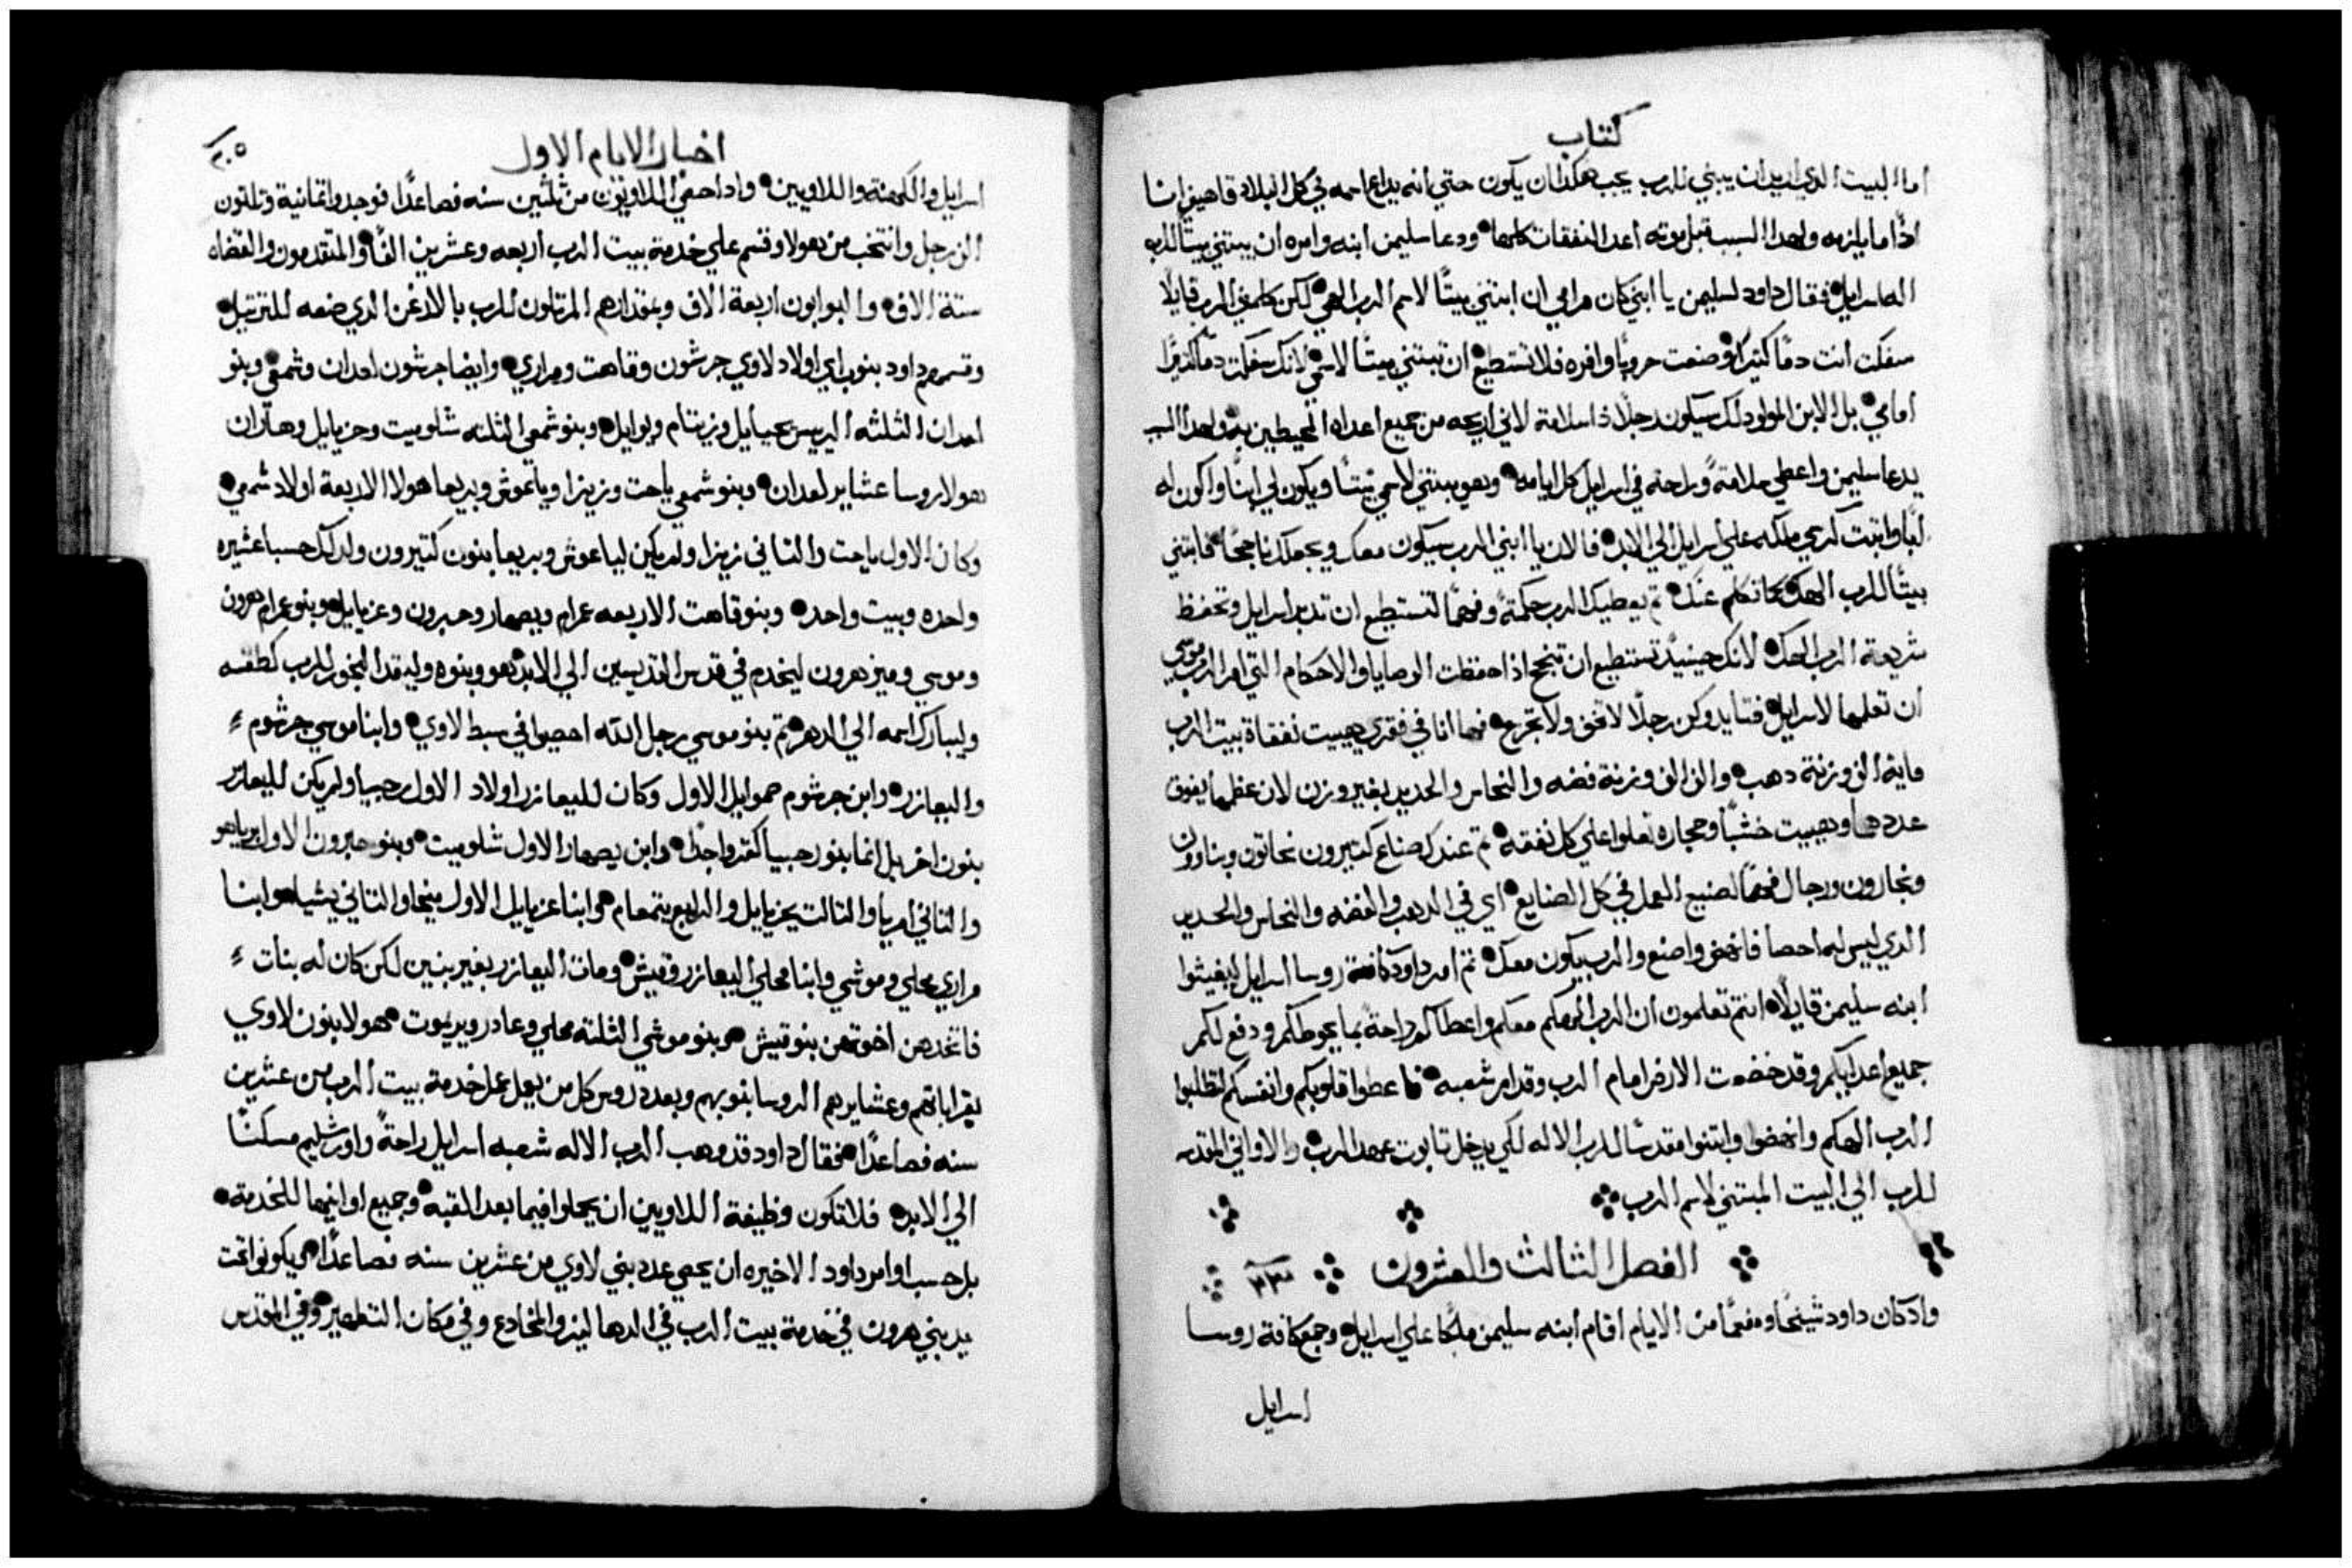 كتاب
اما البيت الذي اريد ان يبني للرب يجب هكذا ان يكون حتي انه يداع اسمه في كل البلاد فاهيي انا
اذًا ما يلزمه ولهدا السبب قبل موته اعد النفقات كلها ودعا سليمن ابنه وامره ان يبتني بيتًا للرب
اله اسرايل فقال داود لسليمن يا ابني كان مرامي ان ابتني بيتًا لاسم الرب الهي لكن كلمني الرب قايلًا
سفكت انت دمًا كتيرًا وصنعت حروبًا وافره فلا تستطيع ان تبتني بيتًا لاسمي لانك سفكت دمًا كتيرًا
امامي بل الابن المولود لك سيكون رجلًا ذا سلامة لاني اريحه من جميع اعداه المحيطين به ولهدا السبب
يدعا سليمن واعطي سلامةً وراحة في اسرايل كل ايامه وهو يبتني لاسمي بيتًا ويكون لي ابنًا واكون له
ابًا واتبت كرسي ملكه علي اسرايل الي الابد فالان يا ابني الرب سيكون معك ويجعلك ناجحًا فابتني
بيتًا للرب الهك كما تكلم عنك تم يعطيك الرب حكمةً وفهمًا لتستطيع ان تدبر اسرايل وتحفظ
شريعة الرب الهك لانك حينيدٍ تستطيع ان تنجح اذا حفظت الوصايا والاحكام التي امر الرب موسي
ان تعلمها لاسرايل فتايد وكن رجلًا لا تخف ولا تجزع فها انا في فقري هييت نفقاة بيت الرب
ماية الف وزنة دهب والف الف وزنة فضه والنحاس والحديد بغير وزن لان عظمها يفوق
عددها وهييت خشبًا وحجاره تعلوا علي كل نفقه تم عندك صناع كتيرون نحاتون وبناوون
ونجارون ورجال فهمًا لصنيع العمل في كل الصنايع اي في الدهب والفضه والنحاس والحديد
الدي ليس له احصا فانهض واصنع والرب يكون معك تم امر داود كافة روسا اسرايل ليغيتوا
ابنه سليمن قايلًا انتم تعلمون ان الرب الهكم معكم واعطاكم راحةً بما يحوطكم ودفع لكم
جميع اعدايكم وقد خضعت الارض امام الرب وقدام شعبه فاعطوا قلوبكم وانفسكم لتطلبوا
الرب الهكم وانهضوا وابتنوا مقدسًا للرب الاله لكي يدخل تابوت عهد الرب والاواني المقدسه
للرب الي البيت المبتني لاسم الرب
الفصل الثالث والعشرون ٢٣
واد كان داود شيخًا ومفعمًا من الايام اقام ابنه سليمن ملكًا علي اسرايل وجمع كافة روسا
اسرايل
اخبار الايام الاول
٢٠٥
اسرايل والكهنة واللاويين واد احصي اللاويون من ثلثين سنه فصاعدًا فوجدوا تمانية وتلتون
الف رجل وانتخب من هولا وقسم علي خدمة بيت الرب اربعه وعشرين الفًا والمتقدمون والقضاه
ستة الاف والبوابون اربعة الاف وبمقدارهم المرتلون للرب بالارغن الدي صنعه للترتيل
وقسمهم داود بنوب اي اولاد لاوي جرشون وقاهت ومراري وايضا جرشون لعدان وشمعي وبنو
لعدان الثلثه الريس يحيايل وزيتام ويوايل وبنو شمعي الثلثه شلوميت وحزيايل وهاران
هولا روسا عشاير لعدان وبنو شمعي ياحت وزيزا وياعوش وبريعا هولا الاربعة اولاد شمعي
وكان الاول ياحت والتاني زيزا ولم يكن لياعوش وبريعا بنون كتيرون ولدلك حسبا عشيره
واحده وبيت واحد وبنو قاهت الاربعه عمرام ويصهار وحبرون وعزيايل وبنو عمرام هرون
وموسي وميز هرون ليخدم في قدس القديسين الي الابد هو وبنوه وليقد البخور للرب كطقسه
وليبارك اسمه الي الدهر تم بنو موسي رجل الله احصيوا في سبط لاوي وابنا موسي جرشوم
واليعازر وابن جرشوم حموايل الاول وكان لليعازر اولاد الاول رحبيا ولم يكن لليعازر
بنون اخر بل انما بنو رحبيا كتروا جدًا وابن يصهار الاول شلوميت وبنو حبرون الاول يرياهو
والتاني امريا والتالت يحزيايل والرابع يتمعام وابنا عزيايل الاول ميخا والتاني يشيا وابنا
مراري محلي وموشي وابنا محلي اليعازر وقيش ومات اليعازر بغير بنين لكن كان له بنات
فاتخدهن اخوتهن بنو قيش وبنو موشي الثلثة محلي وعادر ويريموت هولا بنون لاوي
بقراباتهم وعشايرهم الروسا بنوبهم وبعدد روس كل من يعمل عمل خدمة بيت الرب من عشرين
سنه فصاعدًا فقال داود قد وهب الرب الاله شعبه اسرايل راحةً واورشليم مسكنًا
الي الابد فلا تكون وظيفة اللاويين ان يحملوا فيما بعد القبه وجميع اوانيها للخدمة
بل حسب اوامر داود الاخيره ان يحصي عدد بني لاوي من عشرين سنه فصاعدًا ويكونوا تحت
يد بني هرون في خدمة بيت الرب في الدهاليز والمخادع وفي مكان التطهير وفي المقدس